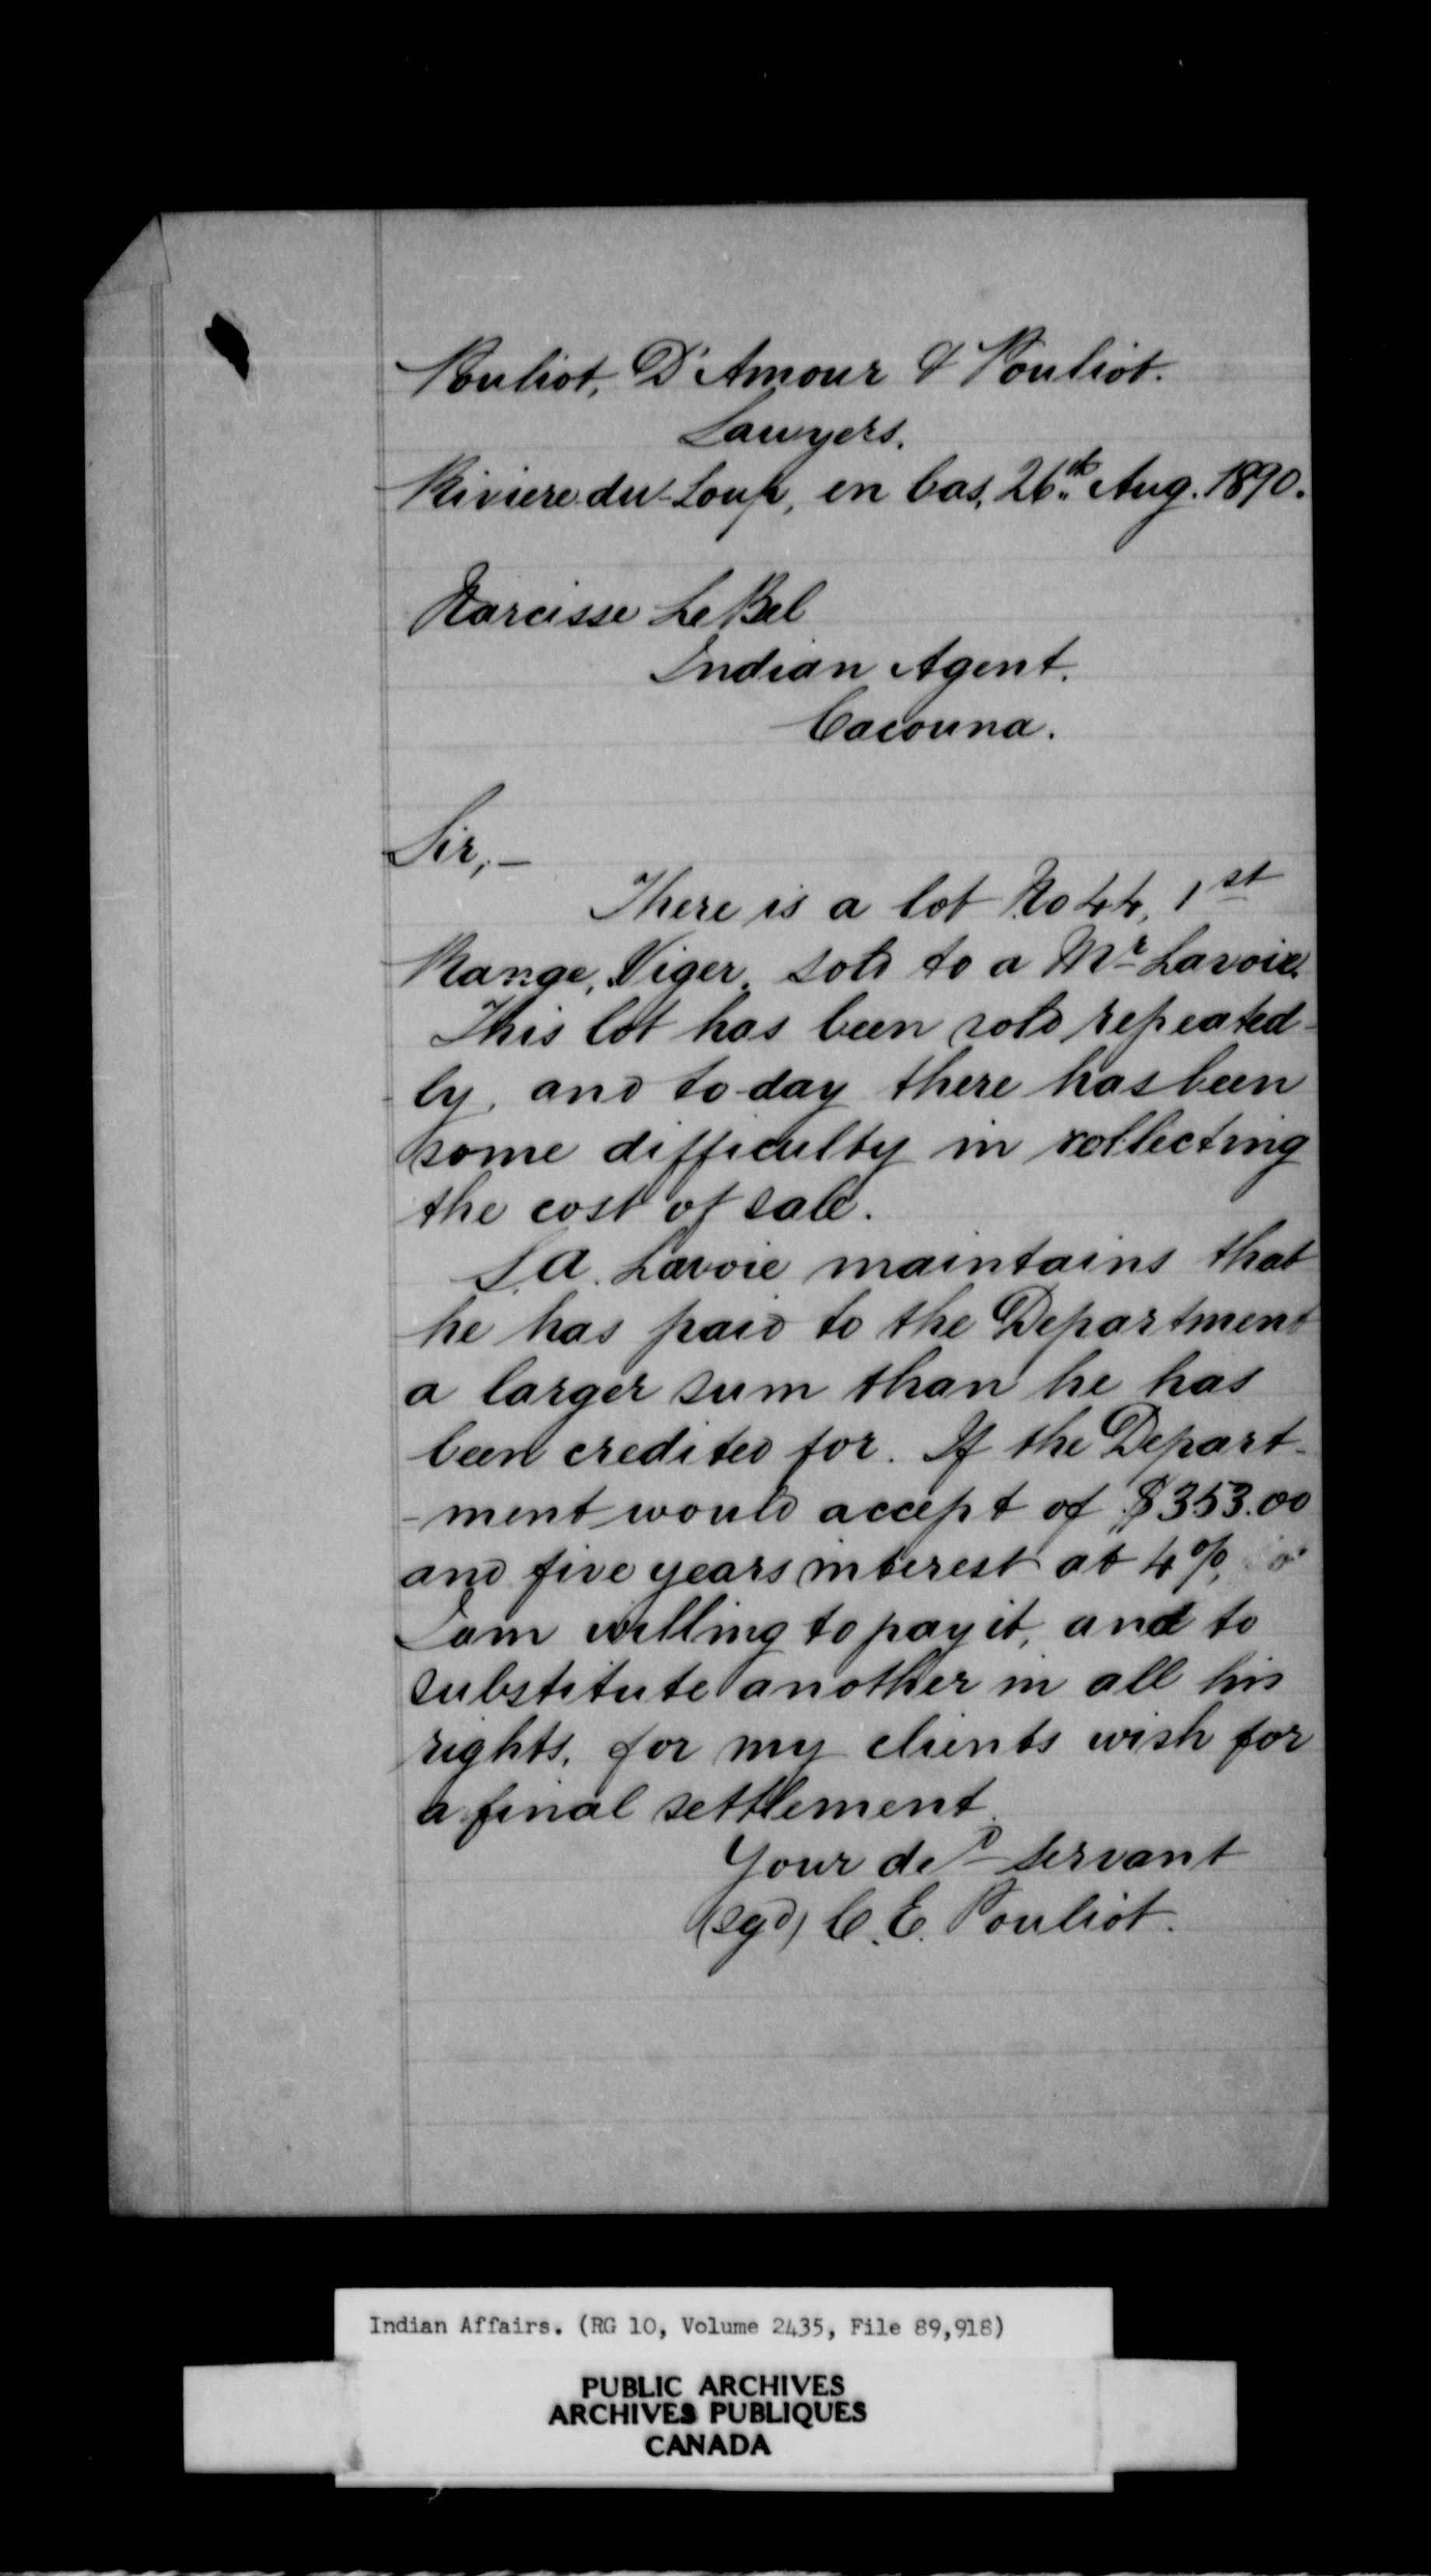 Pouliot, D'Amour & Pouliot.
Lawyers.
Riviere du Loup, en bas, 26th Aug. 1890.
Narcisse LeBel
Indian Agent.
Cacouna.
Sir,—
There is a lot No 44, 1st
Range, Viger, sold to a Mr Lavoie.
This lot has been sold repeated-
ly, and to-day there has been
some difficulty in collecting
the cost of sale.
S. A. Lavoie maintains that
he has paid to the Department
a larger sum than he has
been credited for. If the Depart-
-ment would accept of $353.00
and five years interest at 4%,
I am willing to pay it, and to
substitute another in all his
rights, for my clients wish for
a final settlement.
Your ded servant
(sgd) C. E. Pouliot.
Indian Affairs. (RG 10, Volume 2435, File 89,918)
PUBLIC ARCHIVES
ARCHIVES PUBLIQUES
CANADA